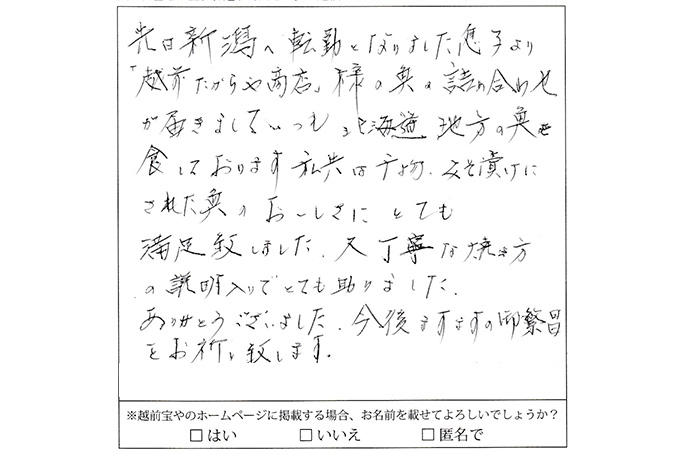 先日新潟へ転勤となりました息子より
「越前たからや商店」様の魚の詰め合わせ
が届きましていつも北海道地方の魚を
食しております私共は干物、みそ漬けに
された魚のおいしさにとても
満足致しました、又丁寧な焼き方
の説明入りでとても助りました、
ありがとうございました、今後ますますの御繁昌
をお祈り致します。
※越前宝やのホームページに掲載する場合、お名前を載せてよろしいでしょうか？
□はい □いいえ □匿名で